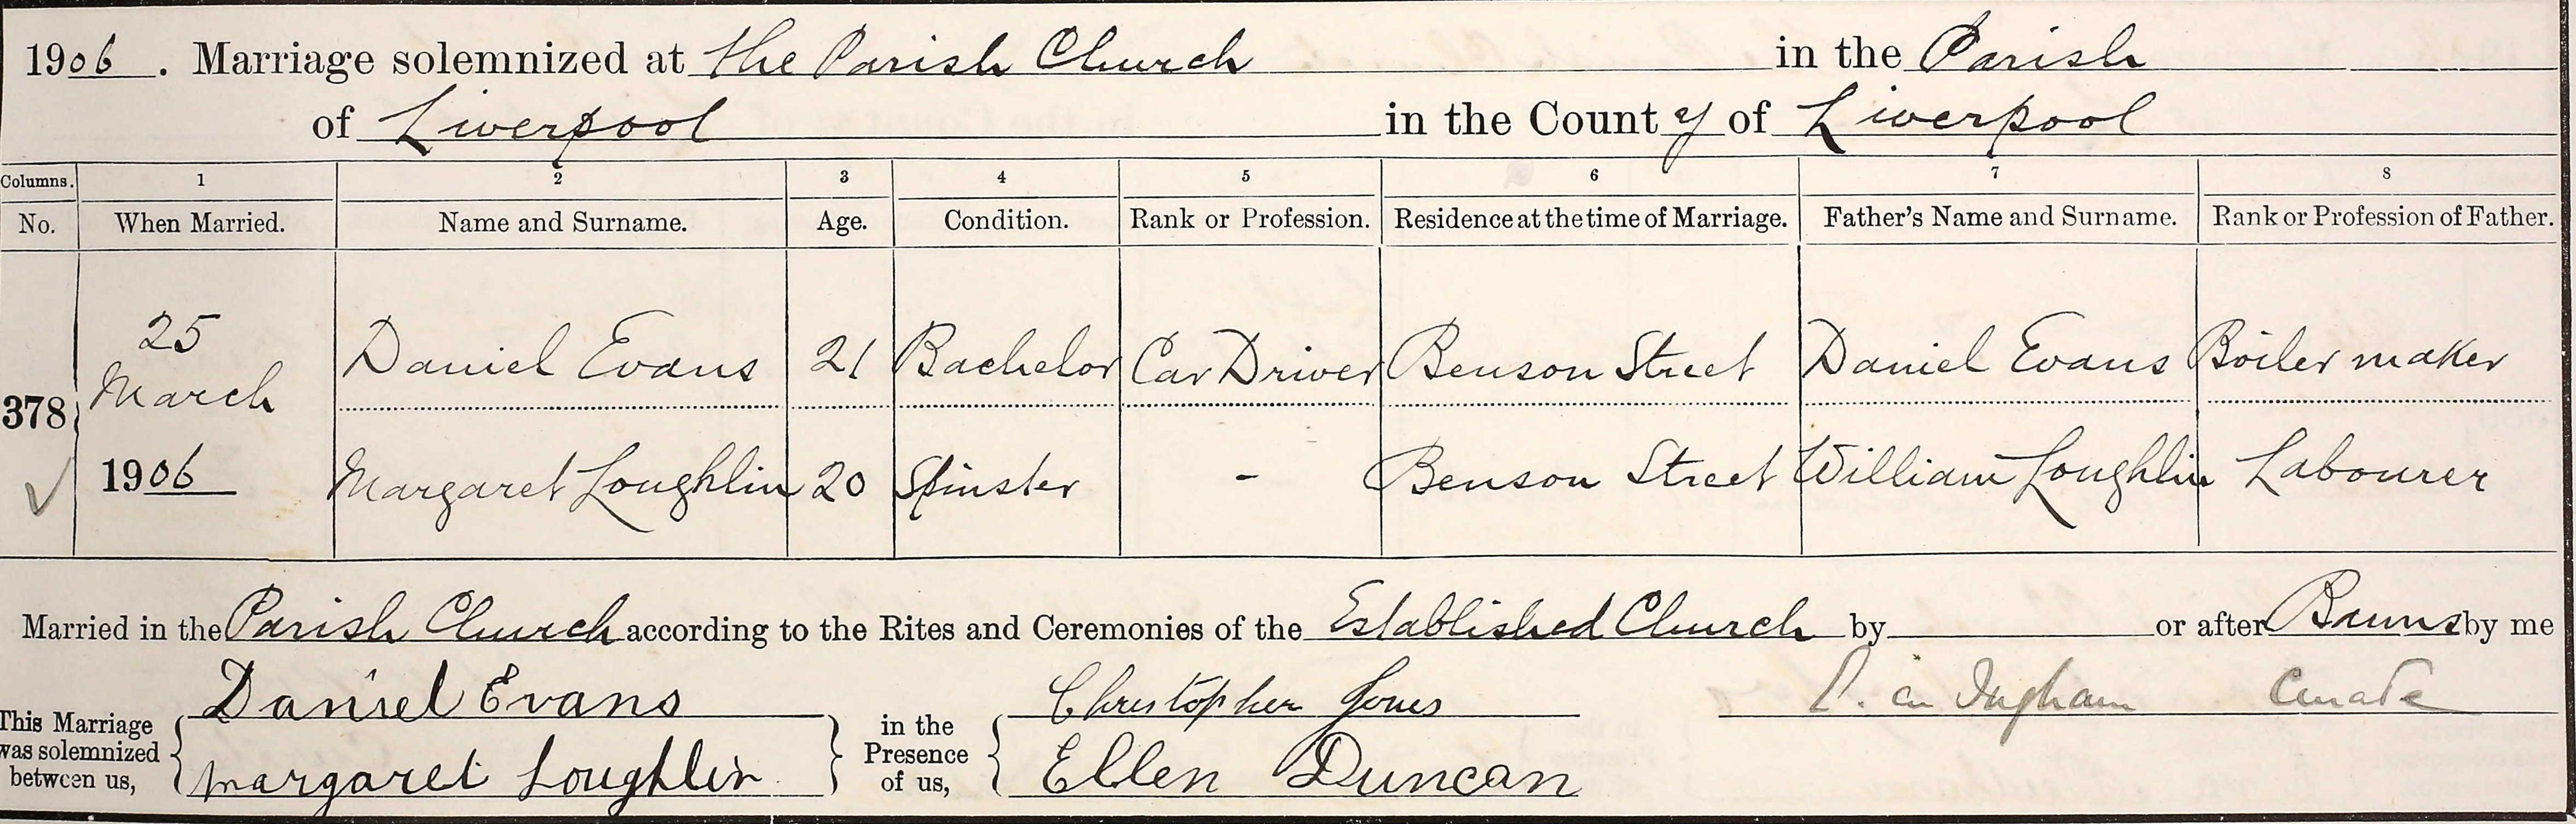 1906. Marriage solemnized at the Parish Church in the Parish
of Liverpool in the County of Liverpool
Columns. 1 2 3 4 5 6 7 8
No. When Married. Name and Surname. Age. Condition. Rank or Profession. Residence at the time of Marriage. Father's Name and Surname. Rank or Profession of Father.
25
March Daniel Evans 21 Bachelor Car Driver Benson Street Daniel Evans Boiler maker
378
1906 Margaret Loughlin 20 Spinster - Benson Street William Loughlin Labourer
Married in the Parish Church according to the Rites and Ceremonies of the Established Church by or after Banns by me
Daniel Evans Christopher Jones Ingham Curate
This Marriage was solemnized between us, in the Presence of us,
Margaret Loughlin Ellen Duncan